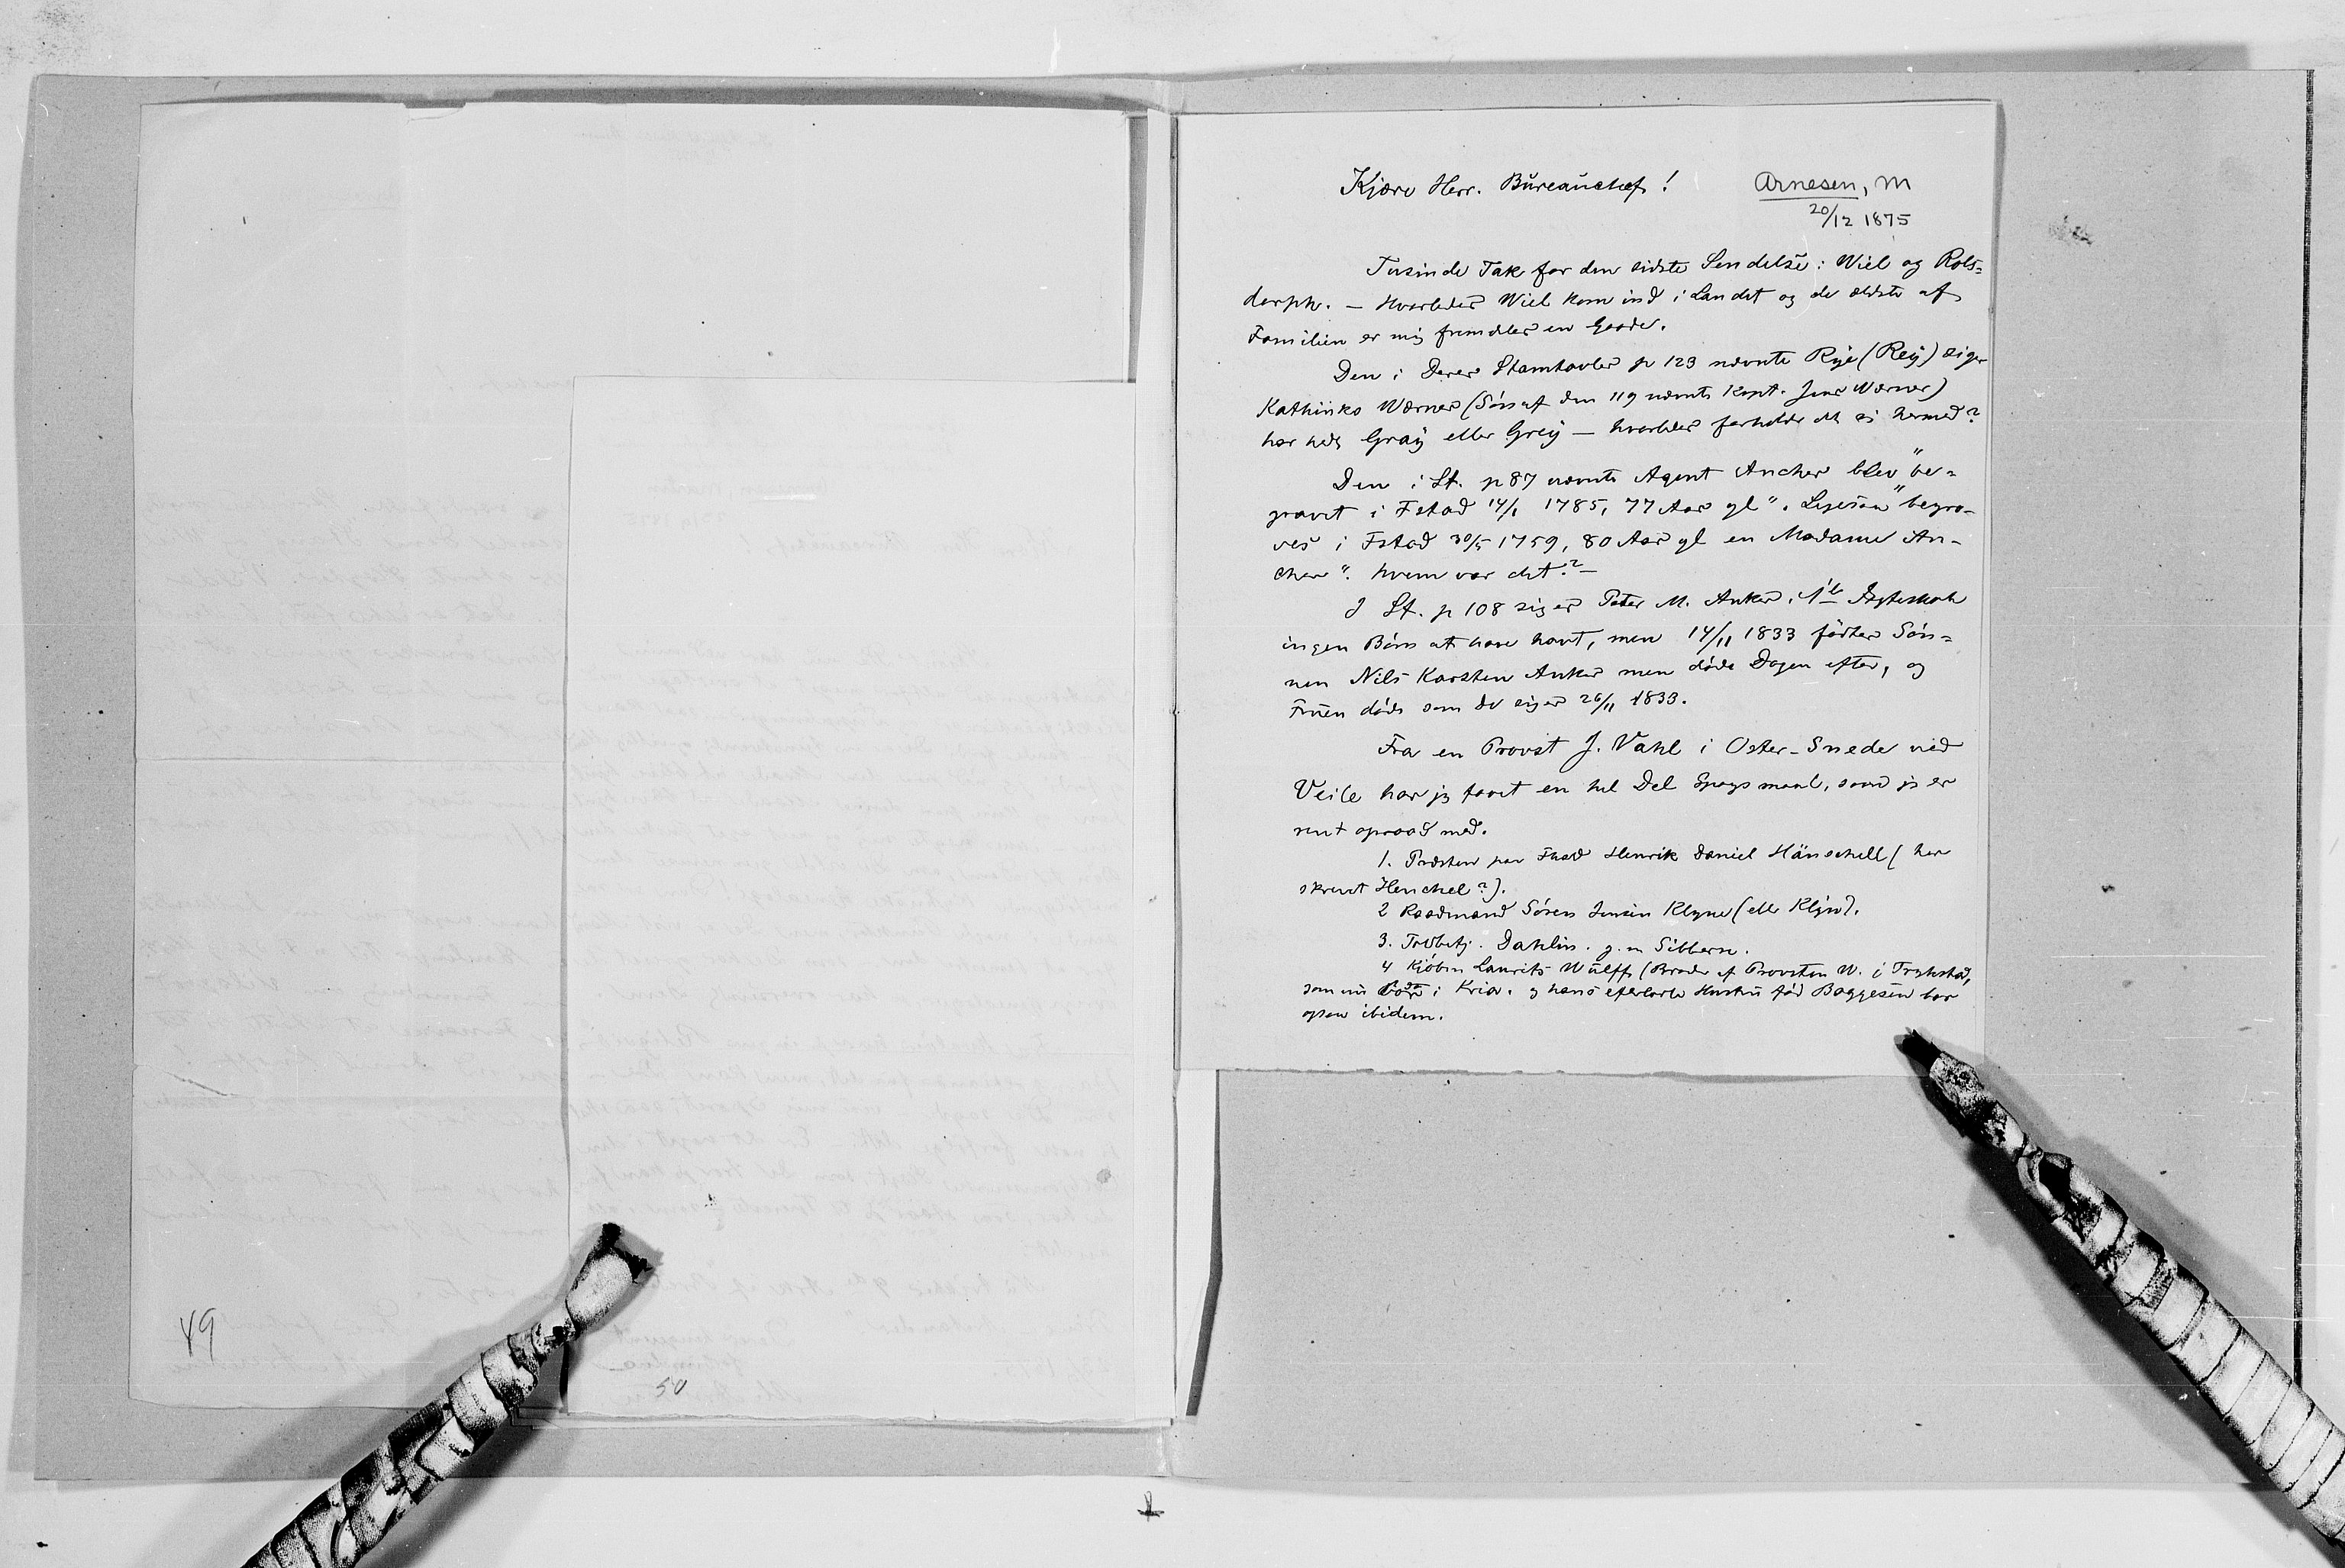 Kjære Herr. Bureauchef!
Arnesen, M
20/12 1875
Tusinde Tak for den sidste Sendelse: Wiel og Rols=
dorph. — Hvorledes Wiel kom ind i Landet og de ældste af
Familien er mig fremdeles en Gaade.
Den i Deres Stamtavler p 123 nævnte Rye (Rey) siger
Kathinka Wærner (Sös af den 119 nævnte Kapt. Jens Wærner)
har hedt Gray eller Grey — hvorledes forholder det si hermed?
Den i St. p 87 nævnte Agent Ancher blev "be-
gravet i Fstad 14/1 1785, 77 Aar gl". Ligesaa "begra-
ves i Fstad 30/5 1759, 80 Aar gl en Madame An-
cher". hvem var det? —
I St. p 108 siges Peter M. Anker i 1ste Ægteskab
ingen Börn at have havt, men 14/11 1833 födtes Sön=
nen Nils Karsten Anker men döde Dagen efter, og
Fruen döde som De siger 26/11 1833.
Fra en Provst J. Vahl i Oster-Snede ved
Veile har jeg faaet en hel Del Spögsmaal, som jeg er
rent opraad med.
1. Præsten paa Fstad Henrik Daniel Hänschell (har
skrevet Henchel?).
2 Raadmand Sören Jensen Klyne (eller Klyn).
3. Toldbetj. Dahlin. g. m Sibbern.
4 Kjöbm Laurits Wulff (Broder af Provsten W. i Trykstad,
som nu i Kria. og hans efterladte Hustru föd Baggesen bor
ogsaa ibidem.
49
50